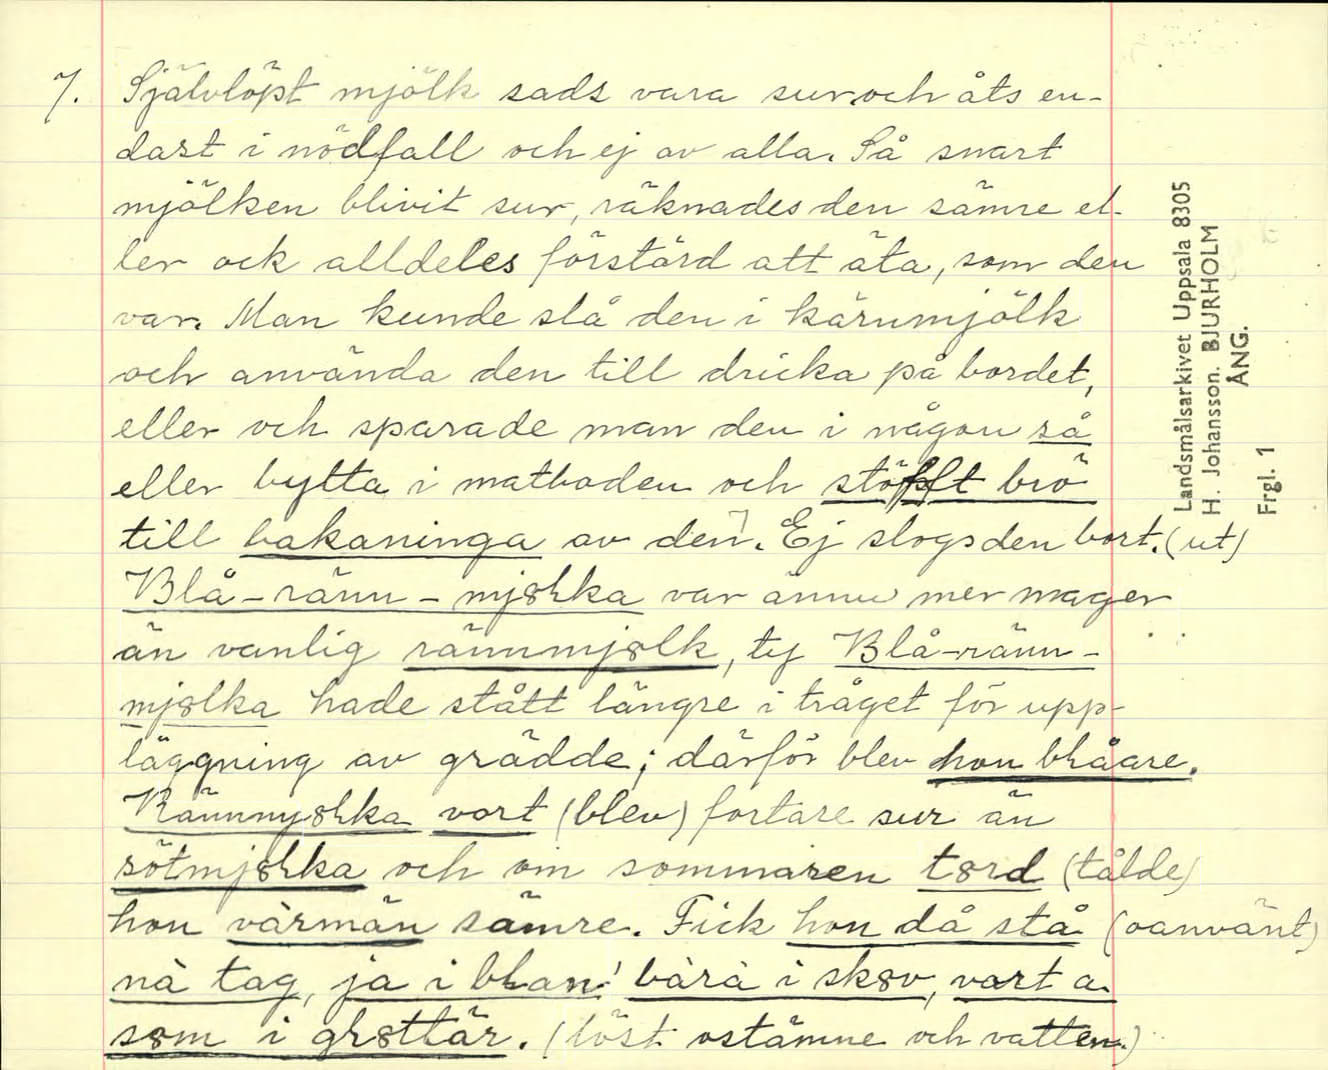 7. Självlöpt mjölk sads vara sur och åts en-
dast i nödfall och ej av alla. Så snart
mjölken blivit sur, räknades den sämre el-
ler ock alldeles förstörd att äta, som den
var. Man kunde slå den i kärnmjölk
och använda den till dricka på bordet,
eller och sparade man den i någon så
eller bytta i matboden och stöfft brö
till bakaninga av den. Ej slogs den bort. (ut)
Blå-ränn-mjȣłka var ännu mer mager
än vanlig rännmjȣlk, ty Blå-ränn-
mjȣlka hade stått längre i tråget för upp-
läggning av grädde; därför blev hon błåare.
Rännmjȣłka vort (blev) fortare sur än
sötmjȣłka och om sommaren tȣrd (tålde)
hon värmän sämre. Fick hon då stå (oanvänt)
nà tag, ja i błan! bàrà i skȣv, vart a
sȣm i grȣttär. (löst ostämne och vatten.)
Landsmålsarkivet Uppsala 8305
H. Johansson. BJURHOLM
ÅNG.
Frgl. 1